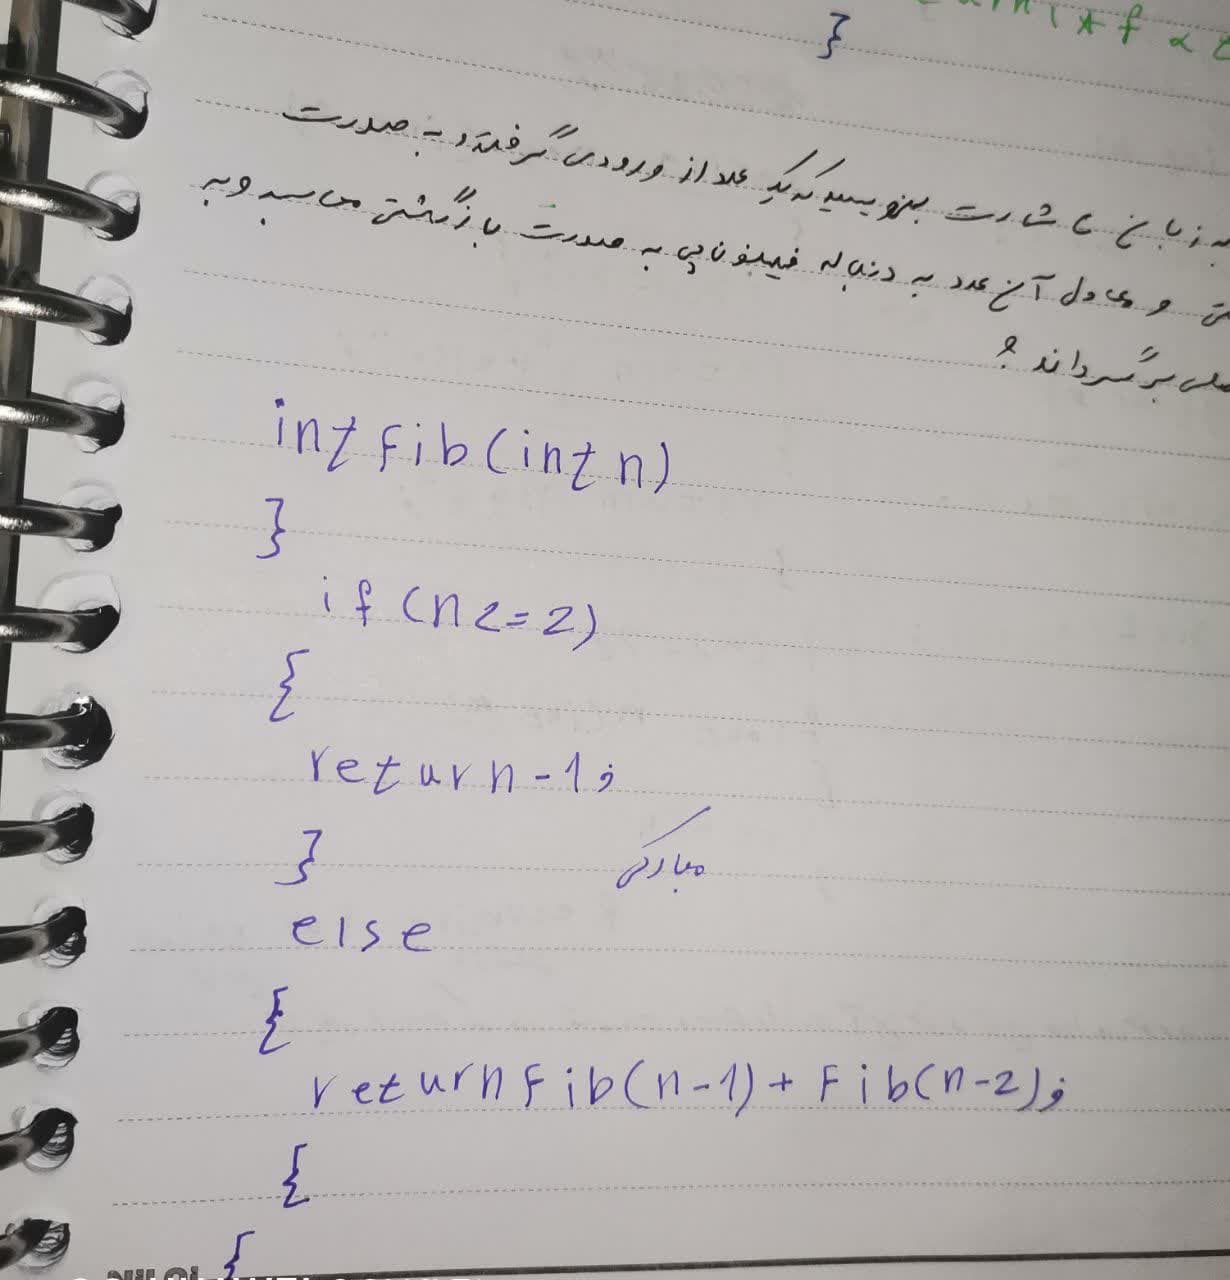 }
به زبان سی شارپ بنویسید که یک عدد از ورودی گرفته و به صورت
و معادل آن عدد به دنباله فیبوناچی به صورت بازگشتی محاسبه و به
برگرداند ؟
int Fib(int n)
}
if (n <= 2)
{
return n-1;
}
مبارکی
else
{
return Fib(n-1) + Fib(n-2);
{
{